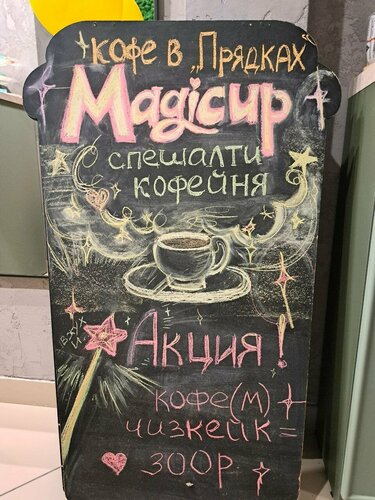 кофе в „Прядках
Magicup
спешалти
кофейня
Вжух
и
Акция!
кофе(м) +
чизкейк =
300р.